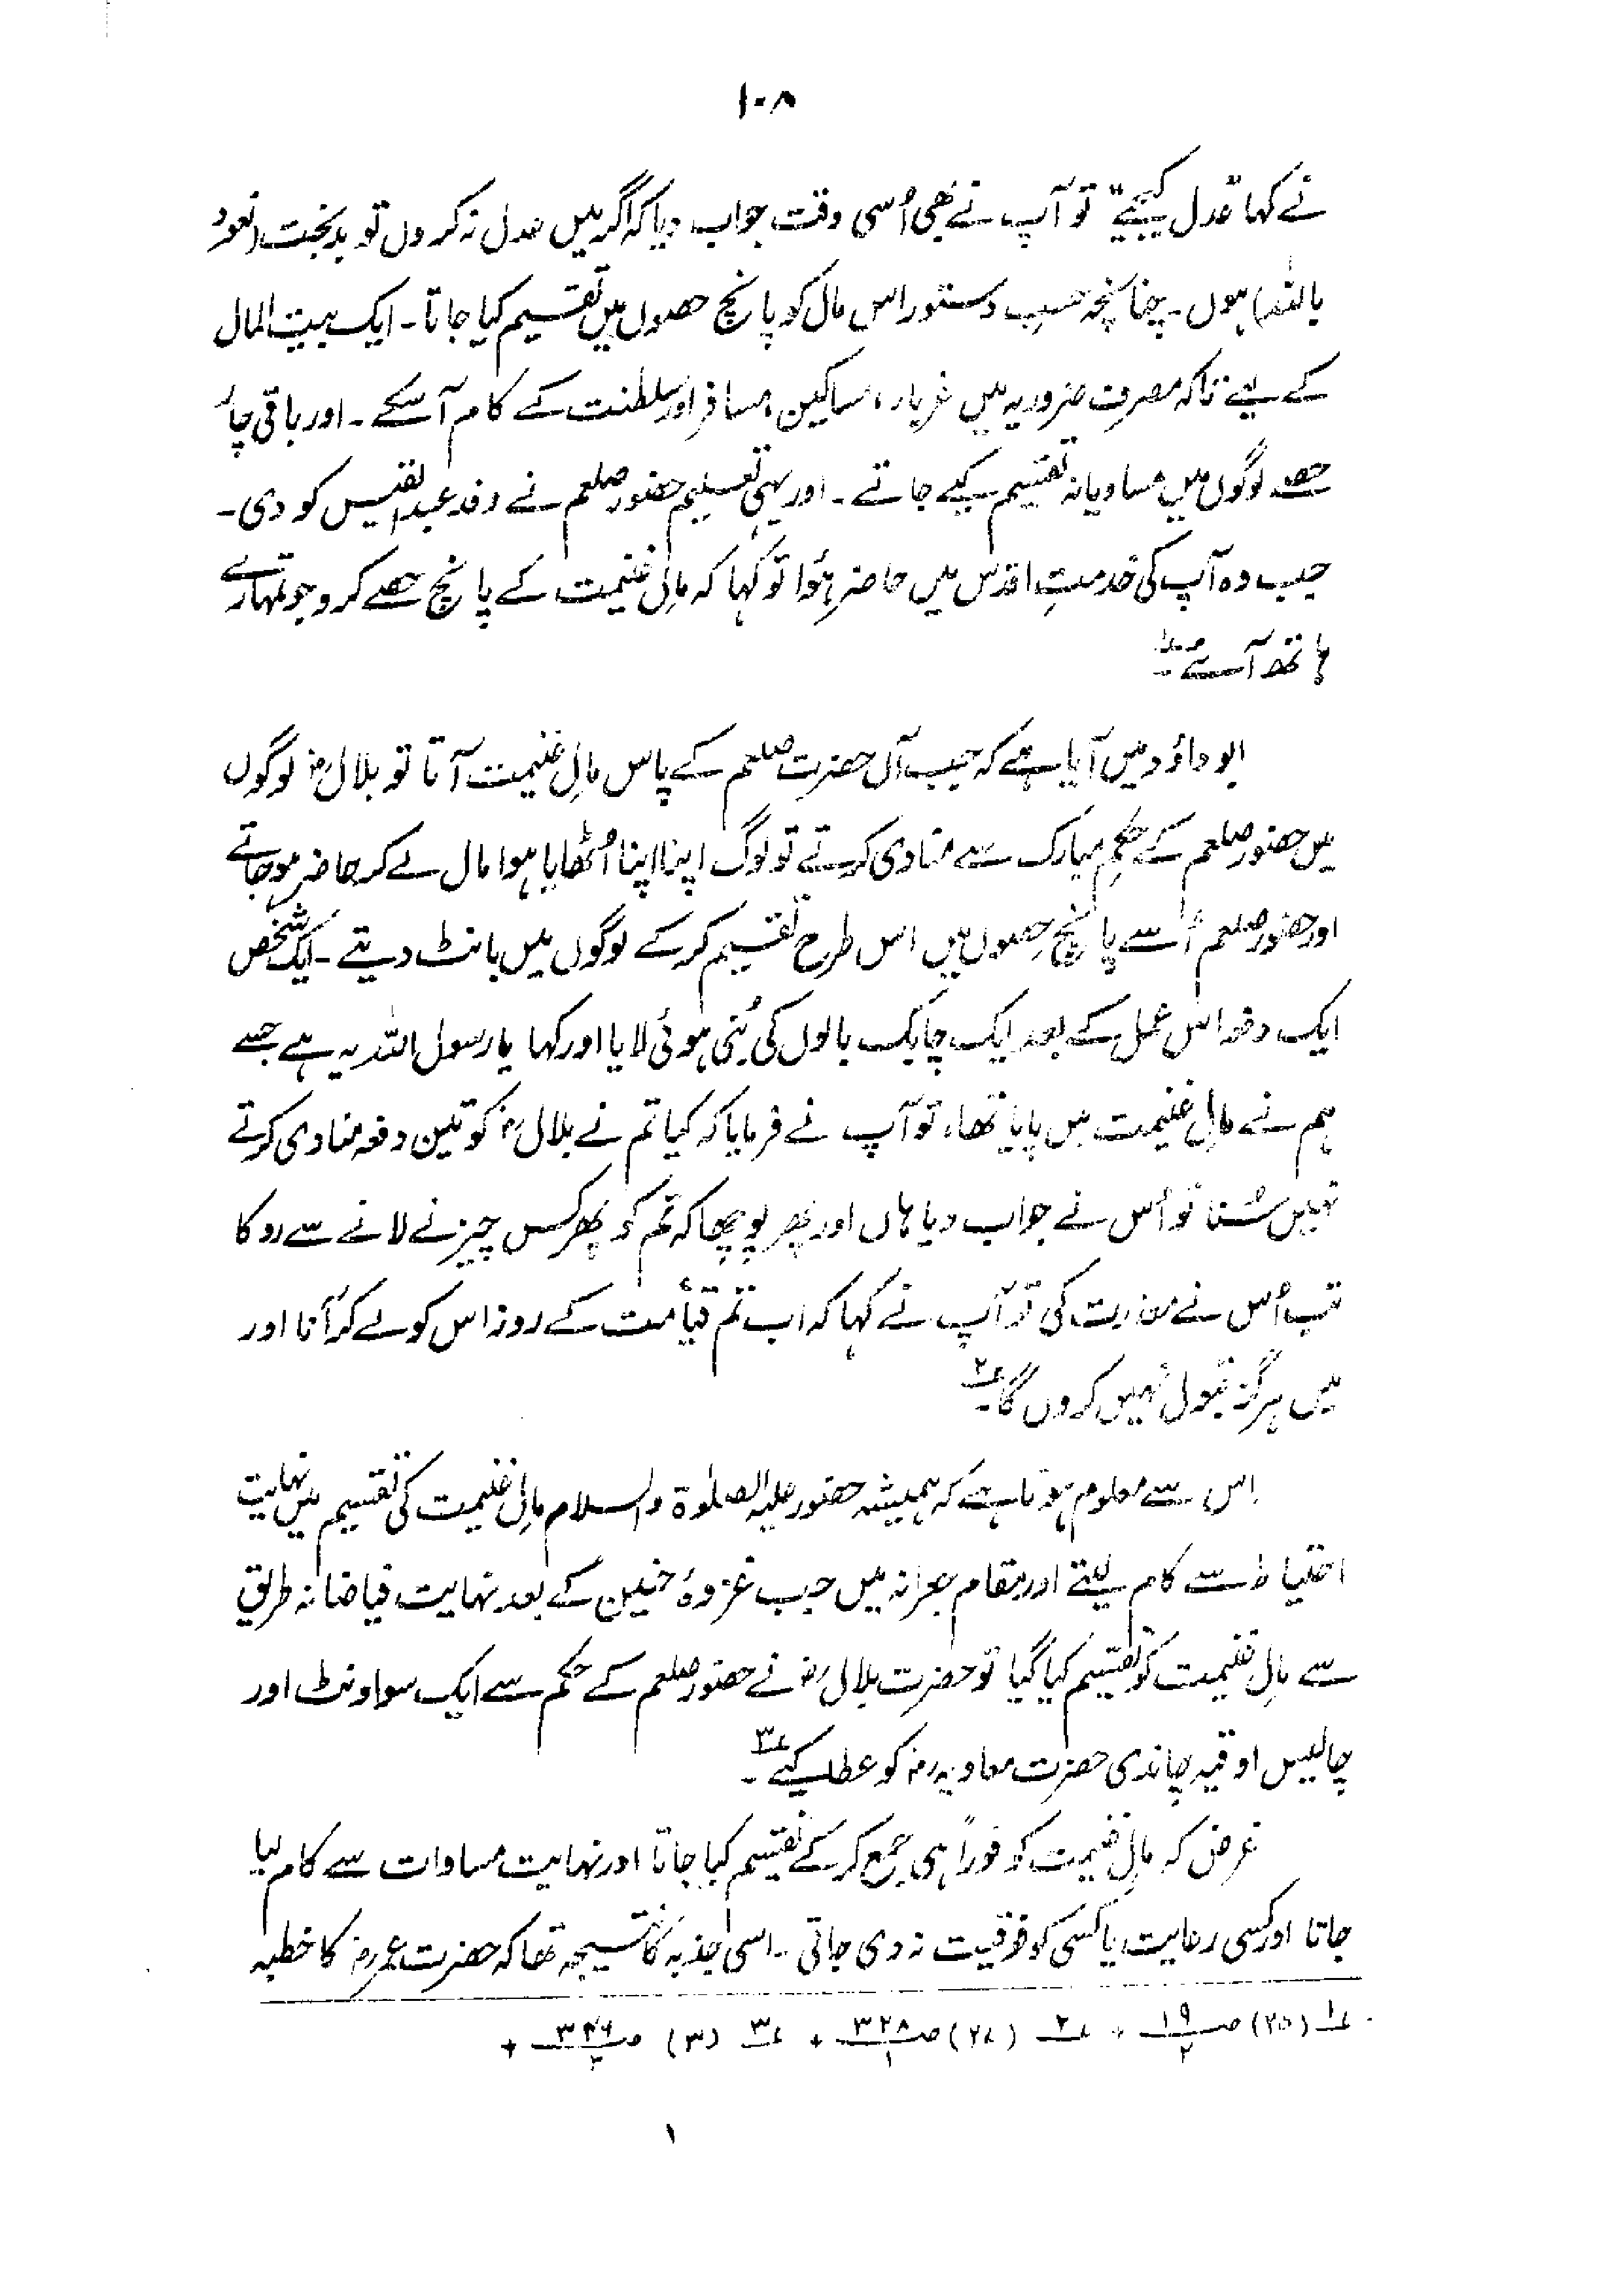 ۱۰۸
نے کہا "عدل کیجیے" تو آپ نے بھی اُسی وقت جواب دیا کہ اگر میں عدل نہ کروں تو بدبخت (نعوذ
باللہ) ہوں۔ چنانچہ حسبِ دستور اس مال کو پانچ حصوں میں تقسیم کیا جاتا۔ ایک بیت المال
کے لیے تاکہ مصرفِ ضروریہ میں غرباء، مساکین، مسافر اور سلطنت کے کام آ سکے۔ اور باقی چار
حصے لوگوں میں مساویانہ تقسیم کیے جاتے۔ اور یہی تعلیم حضور صلعم نے وفد عبدالقیس کو دی۔
جب وہ آپ کی خدمتِ اقدس میں حاضر ہؤا تو کہا کہ مالِ غنیمت کے پانچ حصے کرو جو تمہارے
ہاتھ آئے۔ ؏۱
ابو داؤد میں آیا ہے کہ جب آں حضرت صلعم کے پاس مالِ غنیمت آتا تو بلال رض لوگوں
میں حضور صلعم کے حکمِ مبارک سے منادی کرتے تو لوگ اپنا اپنا اُٹھایا ہوا مال لے کر حاضر ہو جاتے
اور حضور صلعم اُسے پانچ حصوں میں اس طرح تقسیم کر کے لوگوں میں بانٹ دیتے۔ ایک شخص
ایک دفعہ اس عمل کے بعد ایک چابک بالوں کی بُنی ہوئی لایا اور کہا یا رسول اللہ یہ ہے جسے
ہم نے مالِ غنیمت میں پایا تھا، تو آپ نے فرمایا کہ کیا تم نے بلال رض کو تین دفعہ منادی کرتے
نہیں سُنا تو اُس نے جواب دیا ہاں اور پھر پوچھا کہ تم کو پھر کس چیز نے لانے سے روکا
تب اُس نے معذرت کی تو آپ نے کہا کہ اب تم قیامت کے روز اس کو لے کر آنا اور
میں ہرگز قبول نہیں کروں گا۔ ؏۲
اس سے معلوم ہوتا ہے کہ ہمیشہ حضور علیہ الصلوٰۃ والسلام مالِ غنیمت کی تقسیم میں نہایت
احتیاط سے کام لیتے اور بمقام جعرانہ میں جب غزوۂ حنین کے بعد نہایت فیاضانہ طریق
سے مالِ غنیمت کو تقسیم کیا گیا تو حضرت بلال رض نے حضور صلعم کے حکم سے ایک سو اونٹ اور
چالیس اوقیہ چاندی حضرت معاویہ رض کو عطا کیے۔ ؏۳
غرض کہ مالِ غنیمت کو فوراً ہی جمع کر کے تقسیم کیا جاتا اور نہایت مساوات سے کام لیا
جاتا اور کسی رعایت یا کسی کو فوقیت نہ دی جاتی۔ اسی جذبہ کا نتیجہ تھا کہ حضرت عمر رض کا خطبہ
؏۱ (۲۵) ص ۱۹/۲ + ؏۲ (۲۷) ص ۳۲۸/۱ + ؏۳ (۳) ص ۳۴۶/۲ +
۱